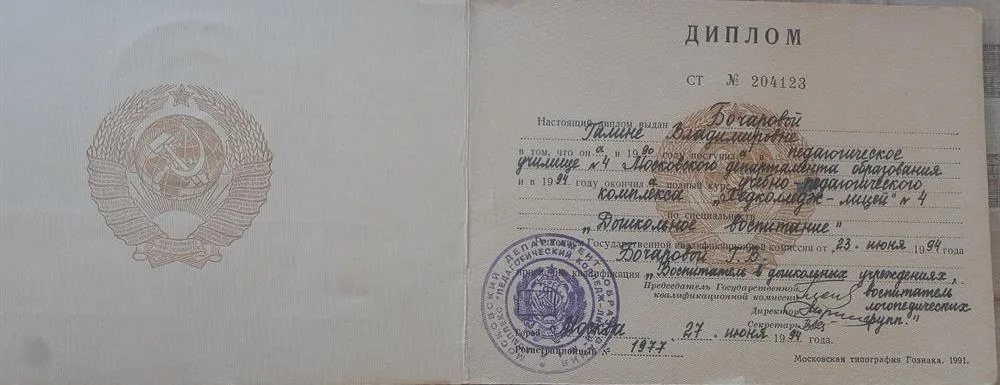 ДИПЛОМ
СТ № 204123
Настоящий диплом выдан Бочаровой
Галине Владимировне
в том, что она в 1990 году поступила в педагогическое
училище №4 Московского департамента образования
и в 1994 году окончила полный курс учебно-педагогического
комплекса "Педколледж-лицей" №4
по специальности
"Дошкольное воспитание"
Решением Государственной квалификационной комиссии от 23. июня 1994 года
Бочаровой Г.В.
присвоена квалификация "Воспитатель в дошкольных учреждениях,
Председатель Государственной
квалификационной комиссии воспитатель
логопедических
Директор групп."
Секретарь
Город Москва 27. июня 1994 года.
Регистрационный № 1977
МОСКОВСКИЙ ДЕПАРТАМЕНТ ОБРАЗОВАНИЯ
Московская типография Гознака. 1991.